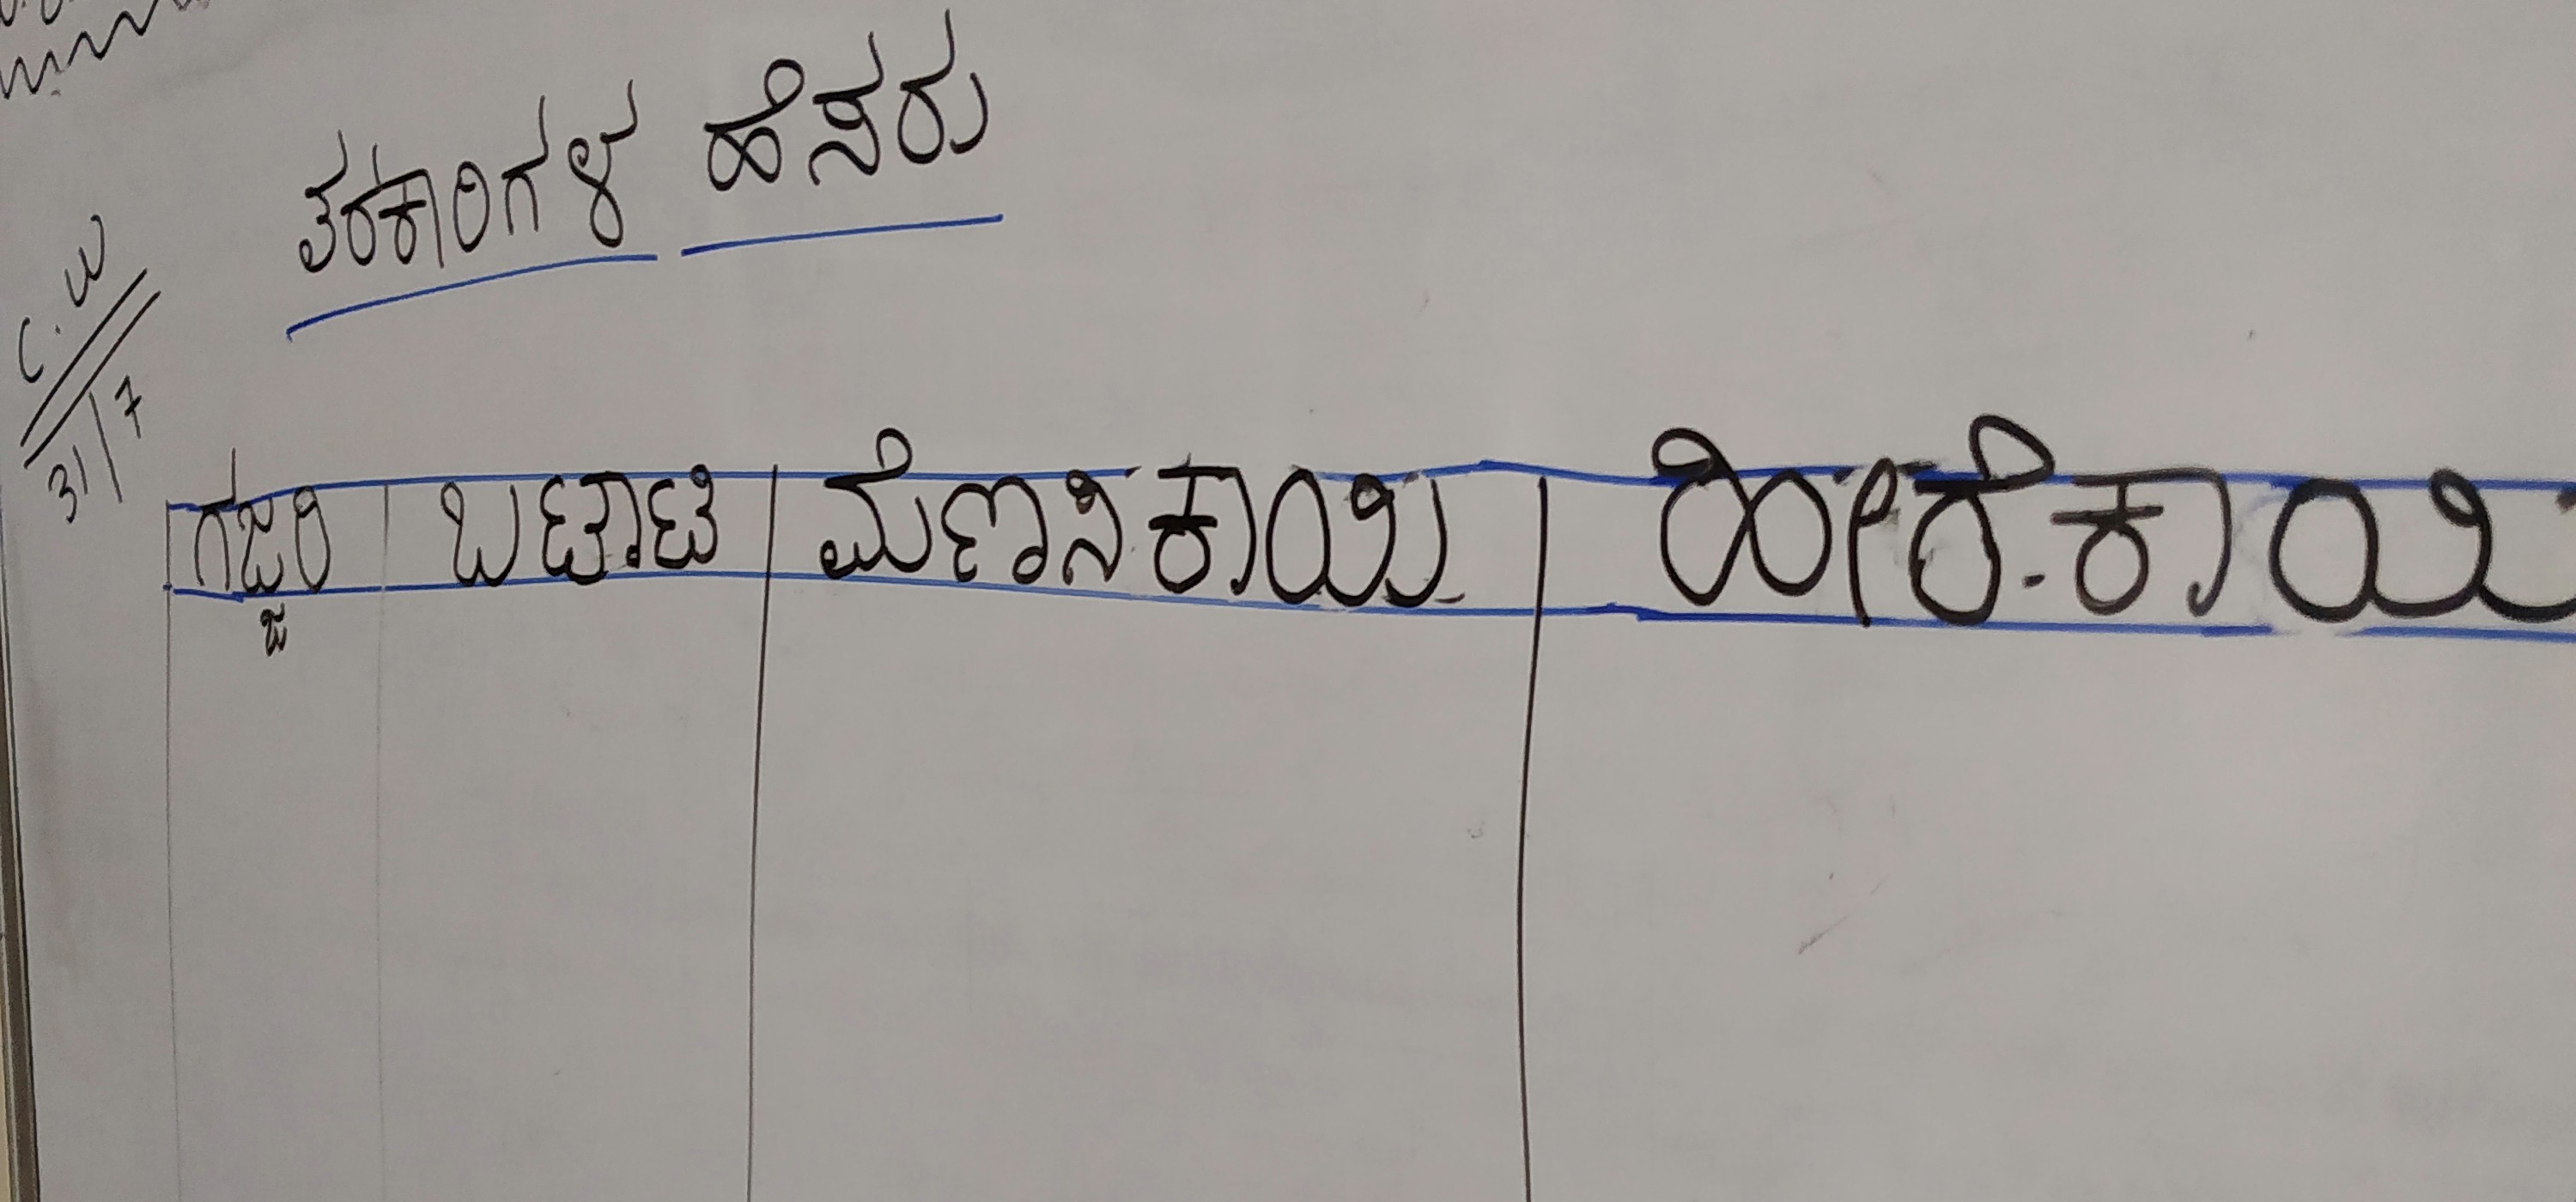 ತರಕಾರಿಗಳ ಹೆಸರು
C.W
31/7
ಗಜ್ಜರಿ ಬಟಾಟಿ ಮೆಣಸಿಕಾಯಿ ಹೀರೆಕಾಯಿ